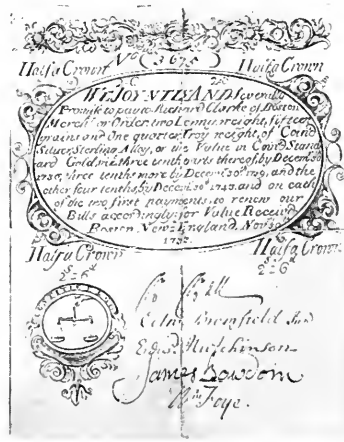 No (3675)
Half a Crown Half a Crown
WE JOYNTLY AND Severally
Promise to pay to Richard Clarke of Boston
Merch.t or Order, two Penny weight, fifteen
grains and One quarter, Troy weight, of Coin'd
Silver, Sterling Alloy, or the Value in Coin'd Stand
ard Gold viz. three tenth parts thereof, by Decem.
three tenths more by Decem. and the
other four tenths, by Decem. 1743. and on each
of the two first payments, to renew our
Bills accordingly: for Value Received
Boston, New: England, Nov.
Half a Crown Half a Crown
2s. 6d. 2s. 6d.
Bromfield Jun
Edwd Hutchinson
James Bowdoin
Wm Foye.